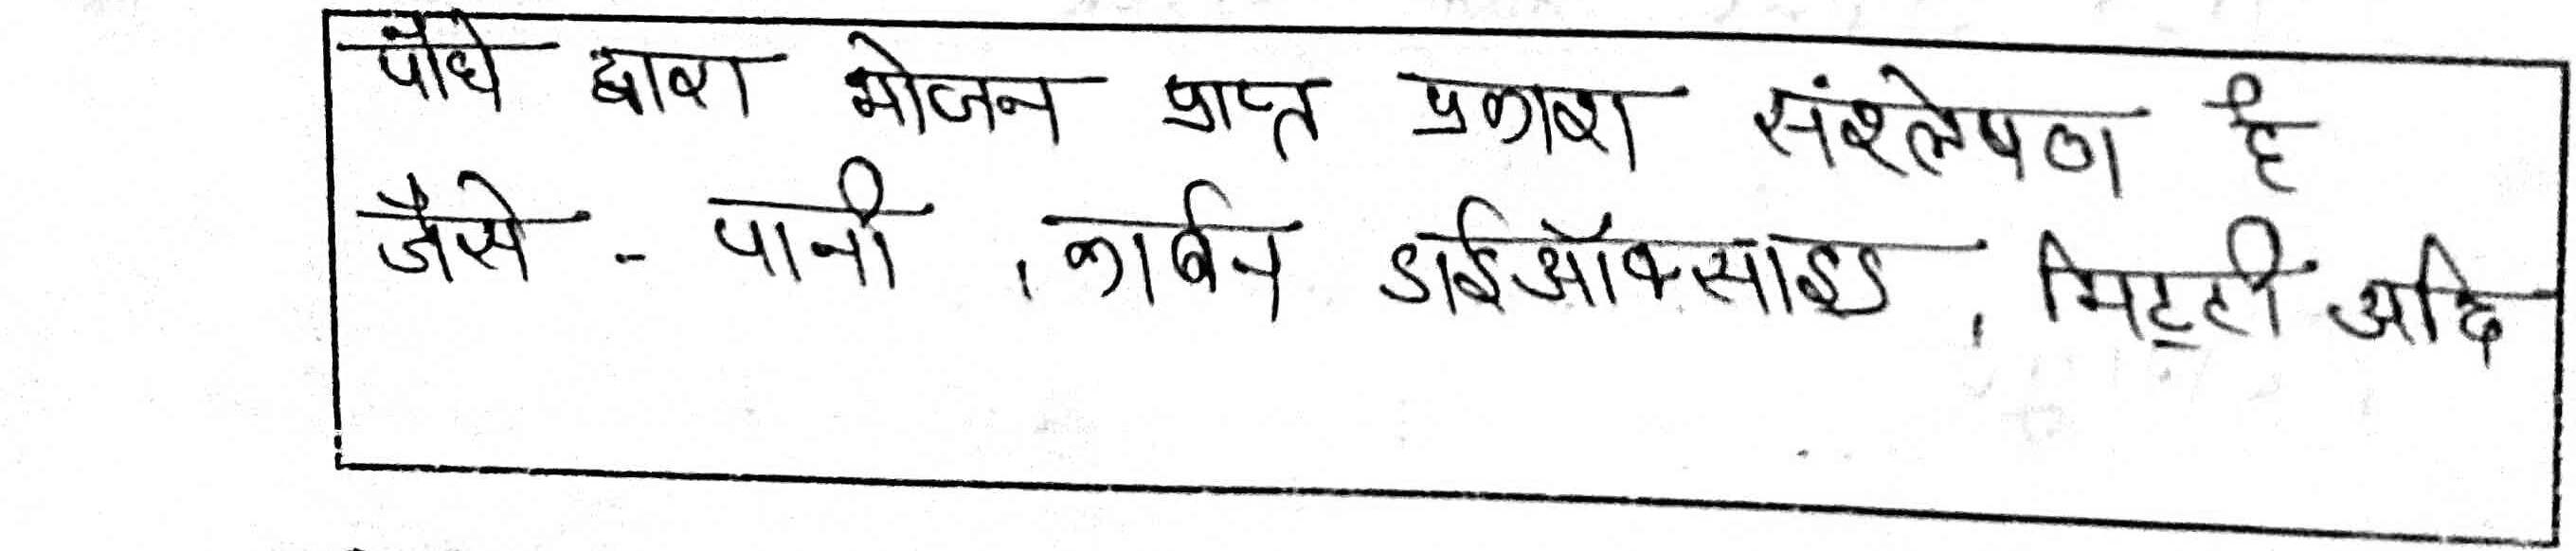 पौधे द्वारा भोजन प्राप्त प्रकाश संश्लेषण है
जैसे - पानी , कार्बन डाईऑक्साइड , मिट्टी आदि